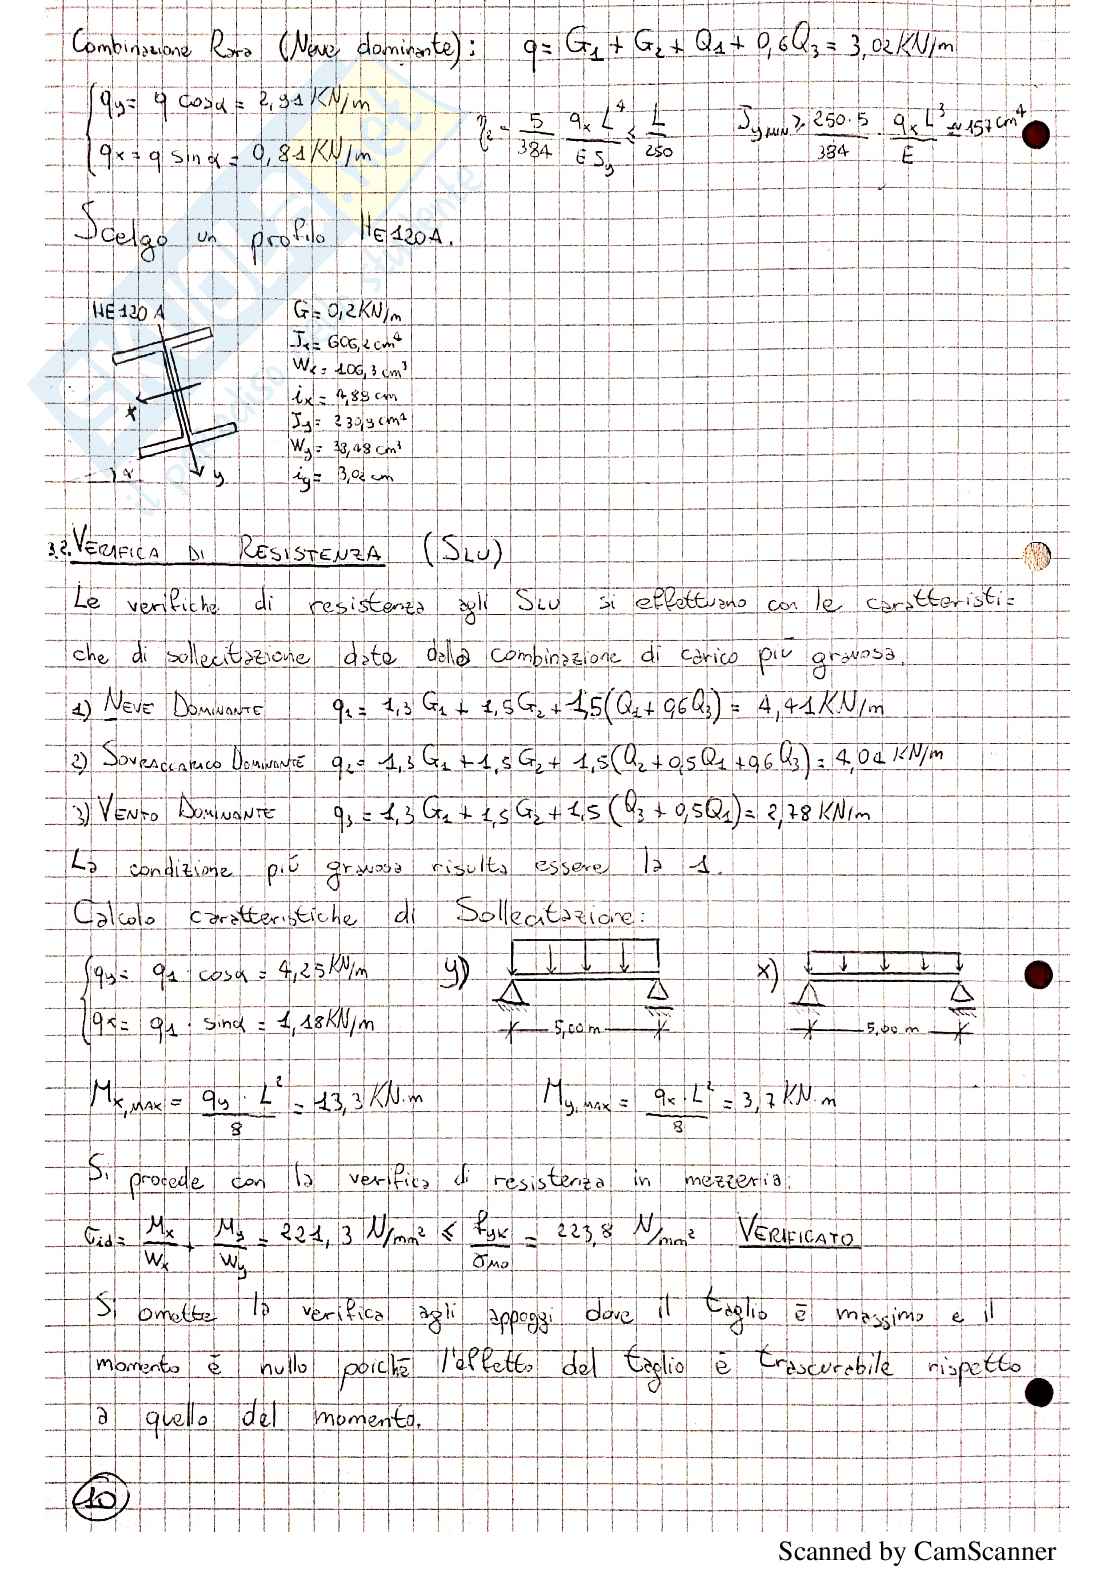 Combinazione Rara (Neve dominante): q = G1 + G2 + Q1 + 0,6Q3 = 3,02 KN/m
qy = q cosα = 2,91 KN/m
qx = q sinα = 0,81 KN/m
5/384 qx L⁴/E Jy ≤ L/250
Jy MIN ≥ 250·5/384 · qx L³/E ≈ 157 cm⁴
Scelgo un profilo HE120A.
HE120A
x
y
α
G = 0,2 KN/m
Jx = 606,2 cm⁴
Wx = 106,3 cm³
ix = 4,89 cm
Jy = 230,9 cm⁴
Wy = 38,48 cm³
iy = 3,02 cm
3.2. VERIFICA DI RESISTENZA (SLU)
Le verifiche di resistenza agli SLU si effettuano con le caratteristi=
che di sollecitazione date dalla combinazione di carico più gravosa.
1) NEVE DOMINANTE q1 = 1,3 G1 + 1,5 G2 + 1,5(Q1 + 0,6Q3) = 4,41 KN/m
2) SOVRACCARICO DOMINANTE q2 = 1,3 G1 + 1,5 G2 + 1,5(Q2 + 0,5Q1 + 0,6Q3) = 4,04 KN/m
3) VENTO DOMINANTE q3 = 1,3 G1 + 1,5 G2 + 1,5(Q3 + 0,5Q1) = 2,78 KN/m
La condizione più gravosa risulta essere la 1.
Calcolo caratteristiche di Sollecitazione:
qy = q1 cosα = 4,25 KN/m
qx = q1 · sinα = 1,18 KN/m
y)
5,00 m
x)
5,00 m
Mx,MAX = qy · L²/8 = 13,3 KN·m
My,MAX = qx · L²/8 = 3,7 KN·m
Si procede con la verifica di resistenza in mezzeria:
σid = Mx/Wx + My/Wy = 221,3 N/mm² ≤ fyk/γM0 = 223,8 N/mm² VERIFICATO
Si omette la verifica agli appoggi dove il taglio è massimo e il
momento è nullo poichè l'effetto del taglio è trascurabile rispetto
a quello del momento.
10
SKUOLA.net
il paradiso dello studente
Scanned by CamScanner